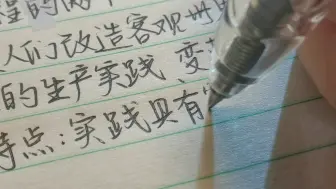 的
人们改造客观世
的生产实践 变
特点:实践具有